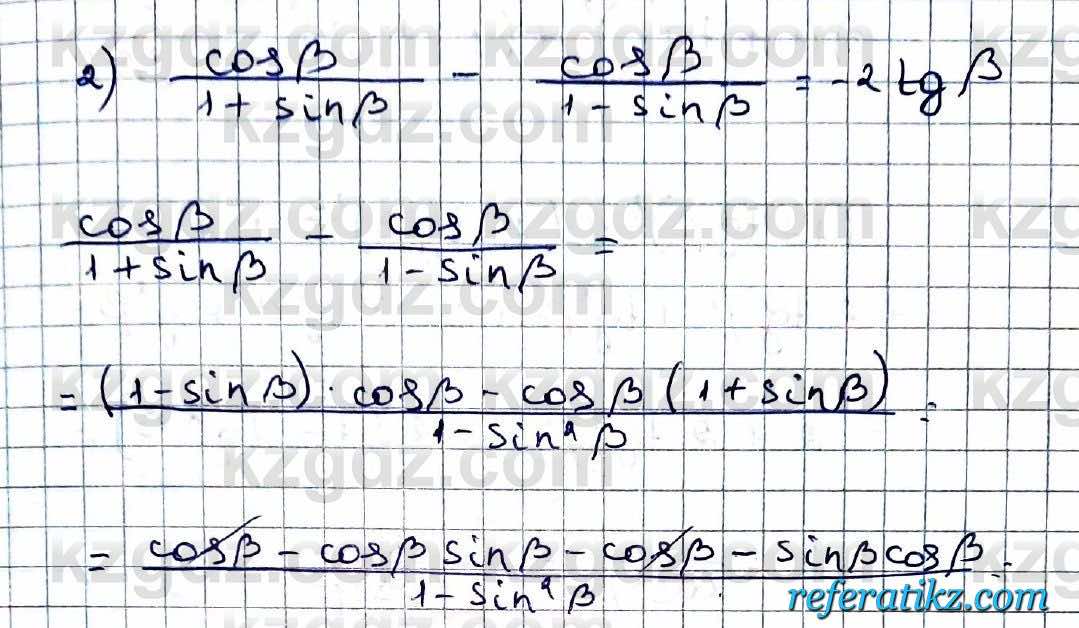 2) cosβ/(1 + sinβ) - cosβ/(1 - sinβ) = -2 tg β
cosβ/(1 + sinβ) - cosβ/(1 - sinβ) =
= ((1 - sinβ) · cosβ - cosβ (1 + sinβ))/(1 - sin²β) =
= (cosβ - cosβ sinβ - cosβ - sinβ cosβ)/(1 - sin²β) =
kzgdz.com
referatikz.com